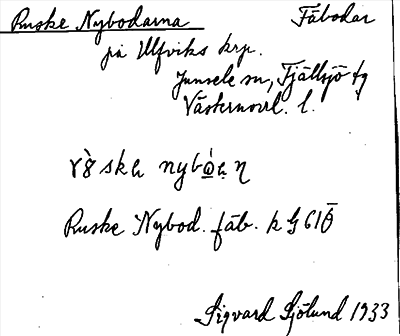 Ruske Nybodarna Fäbodar
på Ulfviks krp.
Junsele sn, Fjällsjö tg
Västernorrl. l.
rȣ̀ ska nybó̲ḁ ɳ
Ruske Nybod. fäb. k G 61 Ö
Sigvard Sjölund 1933